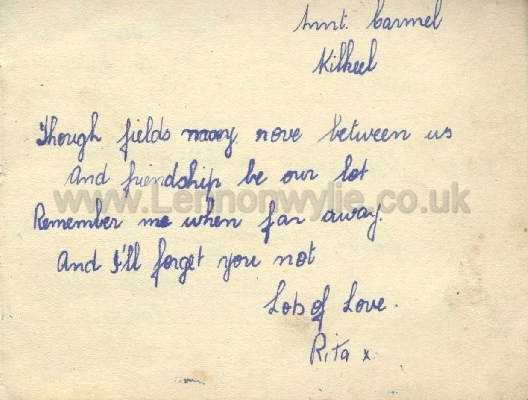 Mnt. Carmel
Kilkeel
Though fields may rove between us
And friendship be our lot
www.Lennonwylie.co.uk
Remember me when far away.
And I'll forget you not
Lots of Love.
Rita x.